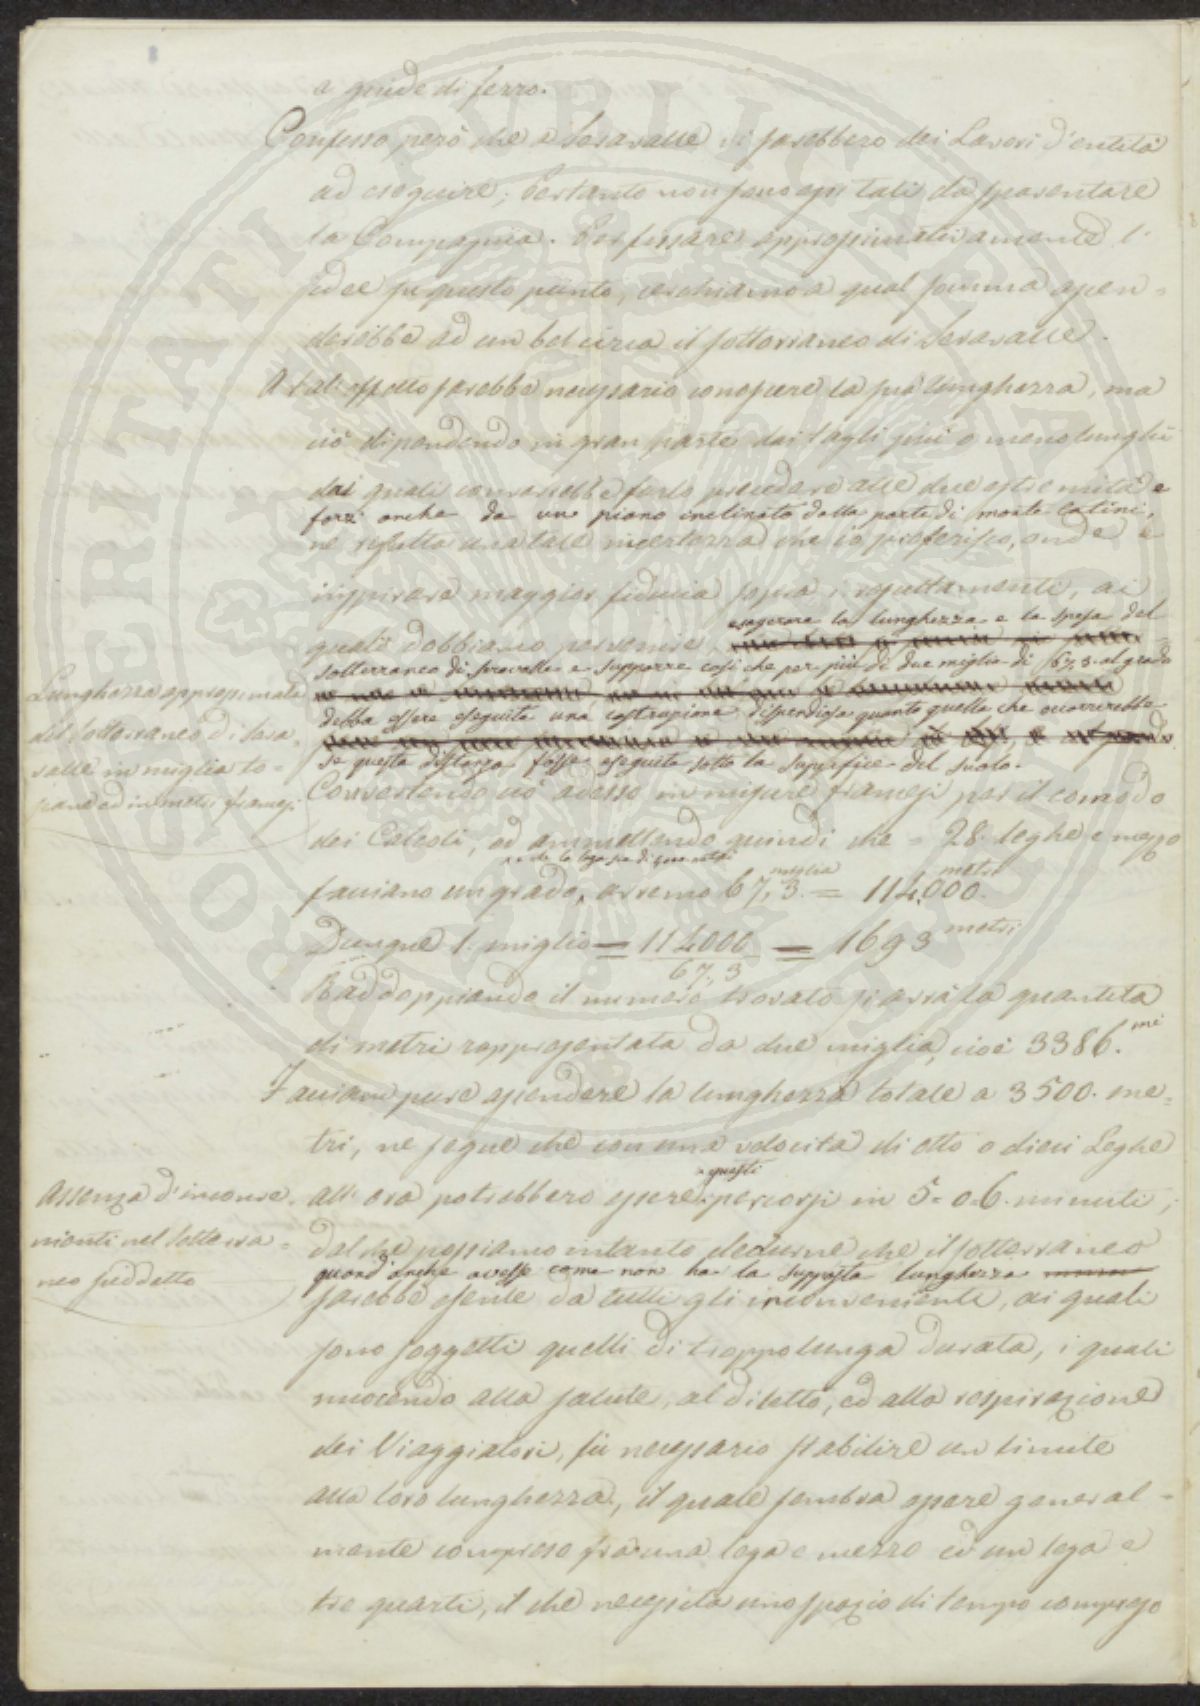 a guide di ferro.
Confesso però che a Seravalle vi sarebbero dei Lavori d'entità
ad eseguire; Pertanto non sono essi tali da spaventare
la Compagnia. Per fissare approssimativamente l'
idee su questo punto, cerchiamo a qual somma ascen=
derebbe ad un bel circa il sotterraneo di Seravalle.
A tal effetto sarebbe necessario conoscere la sua lunghezza, ma
ciò dipendendo in gran parte dai tagli più o meno lunghi
dai quali converrebbe farlo precedere alle due estremità e
forse anche da un piano inclinato dalla parte di monte Catini,
ne risulta una tale incertezza che io preferisco, onde
inspirare maggior fiducia sopra i resultamenti, ai
quali dobbiamo pervenire, esagerare la lunghezza e la spesa del
sotterraneo di Seravalle e supporre così che per più di due miglia di 67,3 al grado
debba essere eseguita una costruzione dispendiosa quanto quella che occorrerebbe
se questa distanza fosse eseguita sotto la superfice del suolo.
Lunghezza approssimata
del Sotterraneo di Sera=
valle in miglia to=
scane ed in metri francesi
Convertendo ciò adesso in misure francesi per il comodo
dei Calcoli, ed ammettendo quindi che = 28. leghe e mezzo
facciano un grado, avremo 67,3. miglia = 114,000. metri
Dunque 1. miglio = 114000 / 67,3 = 1693 metri
Raddoppiando il numero trovato si avrà la quantità
di metri rappresentata da due miglia, cioè 3386. mi
Facciam pure ascendere la lunghezza totale a 3500. me=
tri, ne segue che con una velocità di otto o dieci Leghe
all'ora potrebbero essere questi percorsi in 5= o=6. minuti;
Assenza d'inconve=
nienti nel Sotterra=
neo suddetto
dal che possiamo intanto dedurne che il sotterraneo
quand'anche avesse come non ha la supposta lunghezza
sarebbe esente da tutti gli inconvenienti, ai quali
sono soggetti quelli di troppo lunga durata, i quali
nuocendo alla salute, al diletto, ed alla respirazione
dei Viaggiatori, fù necessario stabilire un limite
alla loro lunghezza, il quale sembra essere general=
mente compreso fra una lega e mezzo ed un lega e
tre quarti, il che necessita uno spazio di tempo compreso